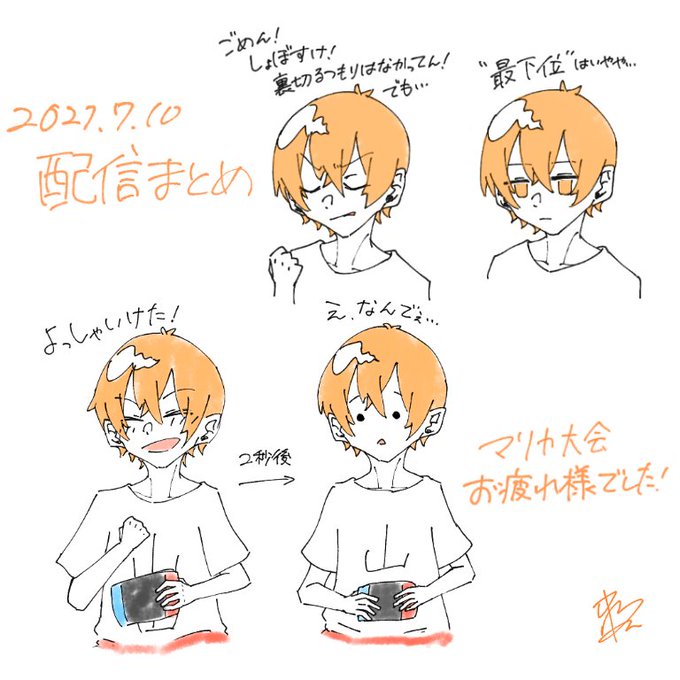 2021.7.10
配信まとめ
ごめん!
しょぼすけ!
裏切るつもりはなかってん!
でも…
"最下位"はいやや…
よっしゃいけた!
2秒後
え、なんでぇ…
マリカ大会
お疲れ様でした!